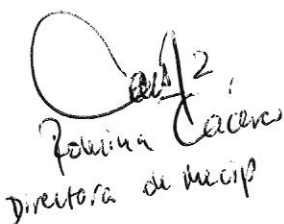 Romina Cáceres
Directora de mecip